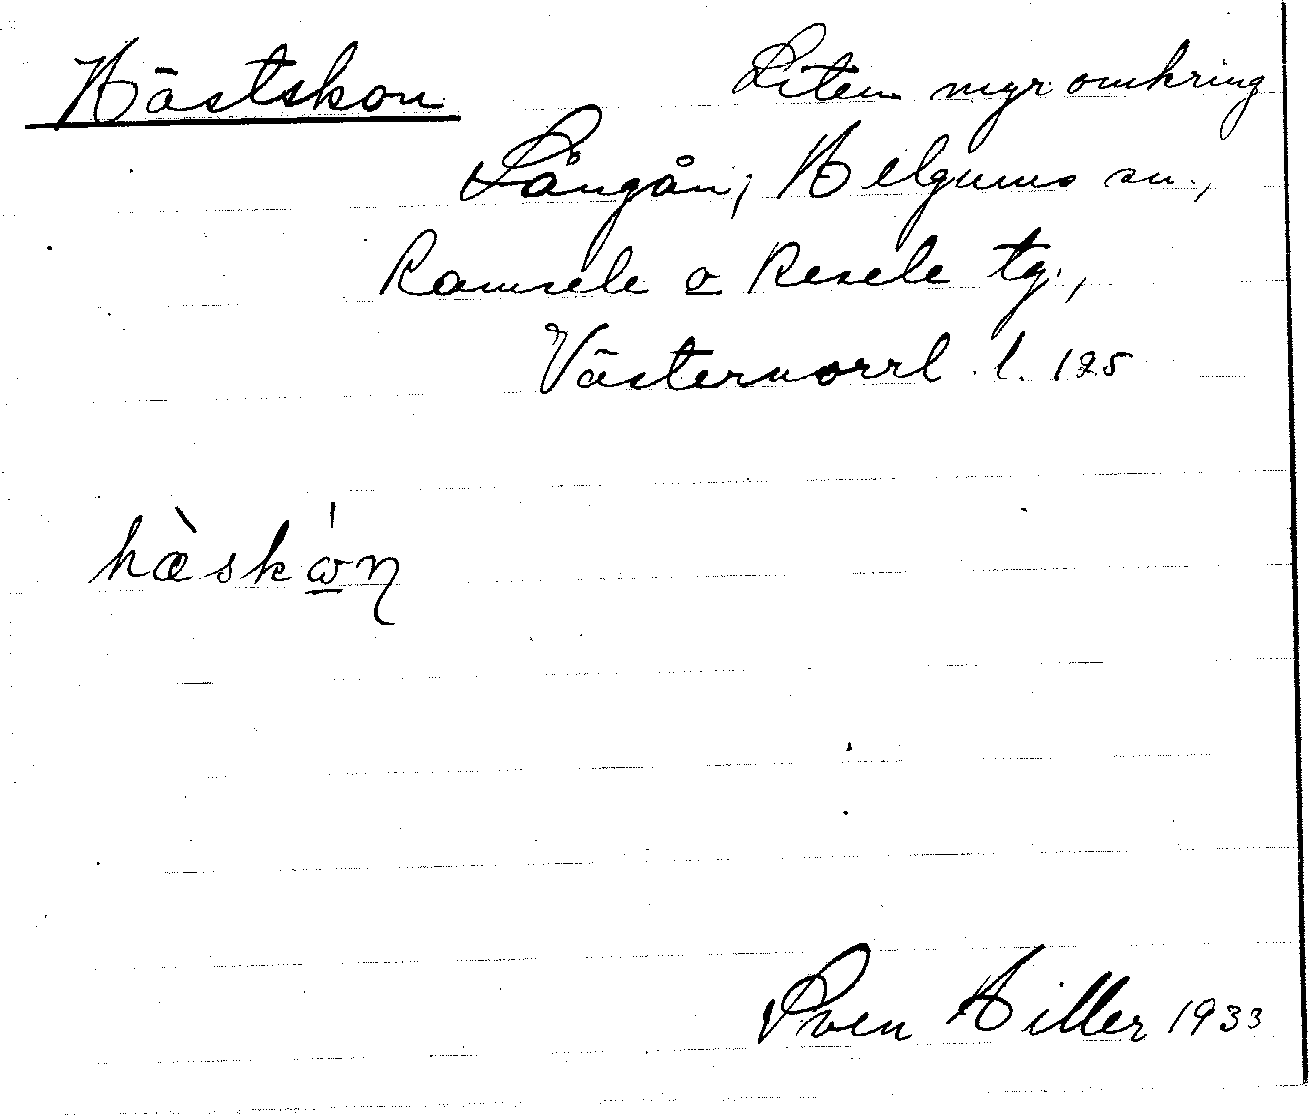 Hästskon Liten myr omkring
Långån, Helgums sn.,
Ramsele o Resele tg.,
Västernorrl. l. 125
hæ̀skώ̲n
Sven Hiller 1933